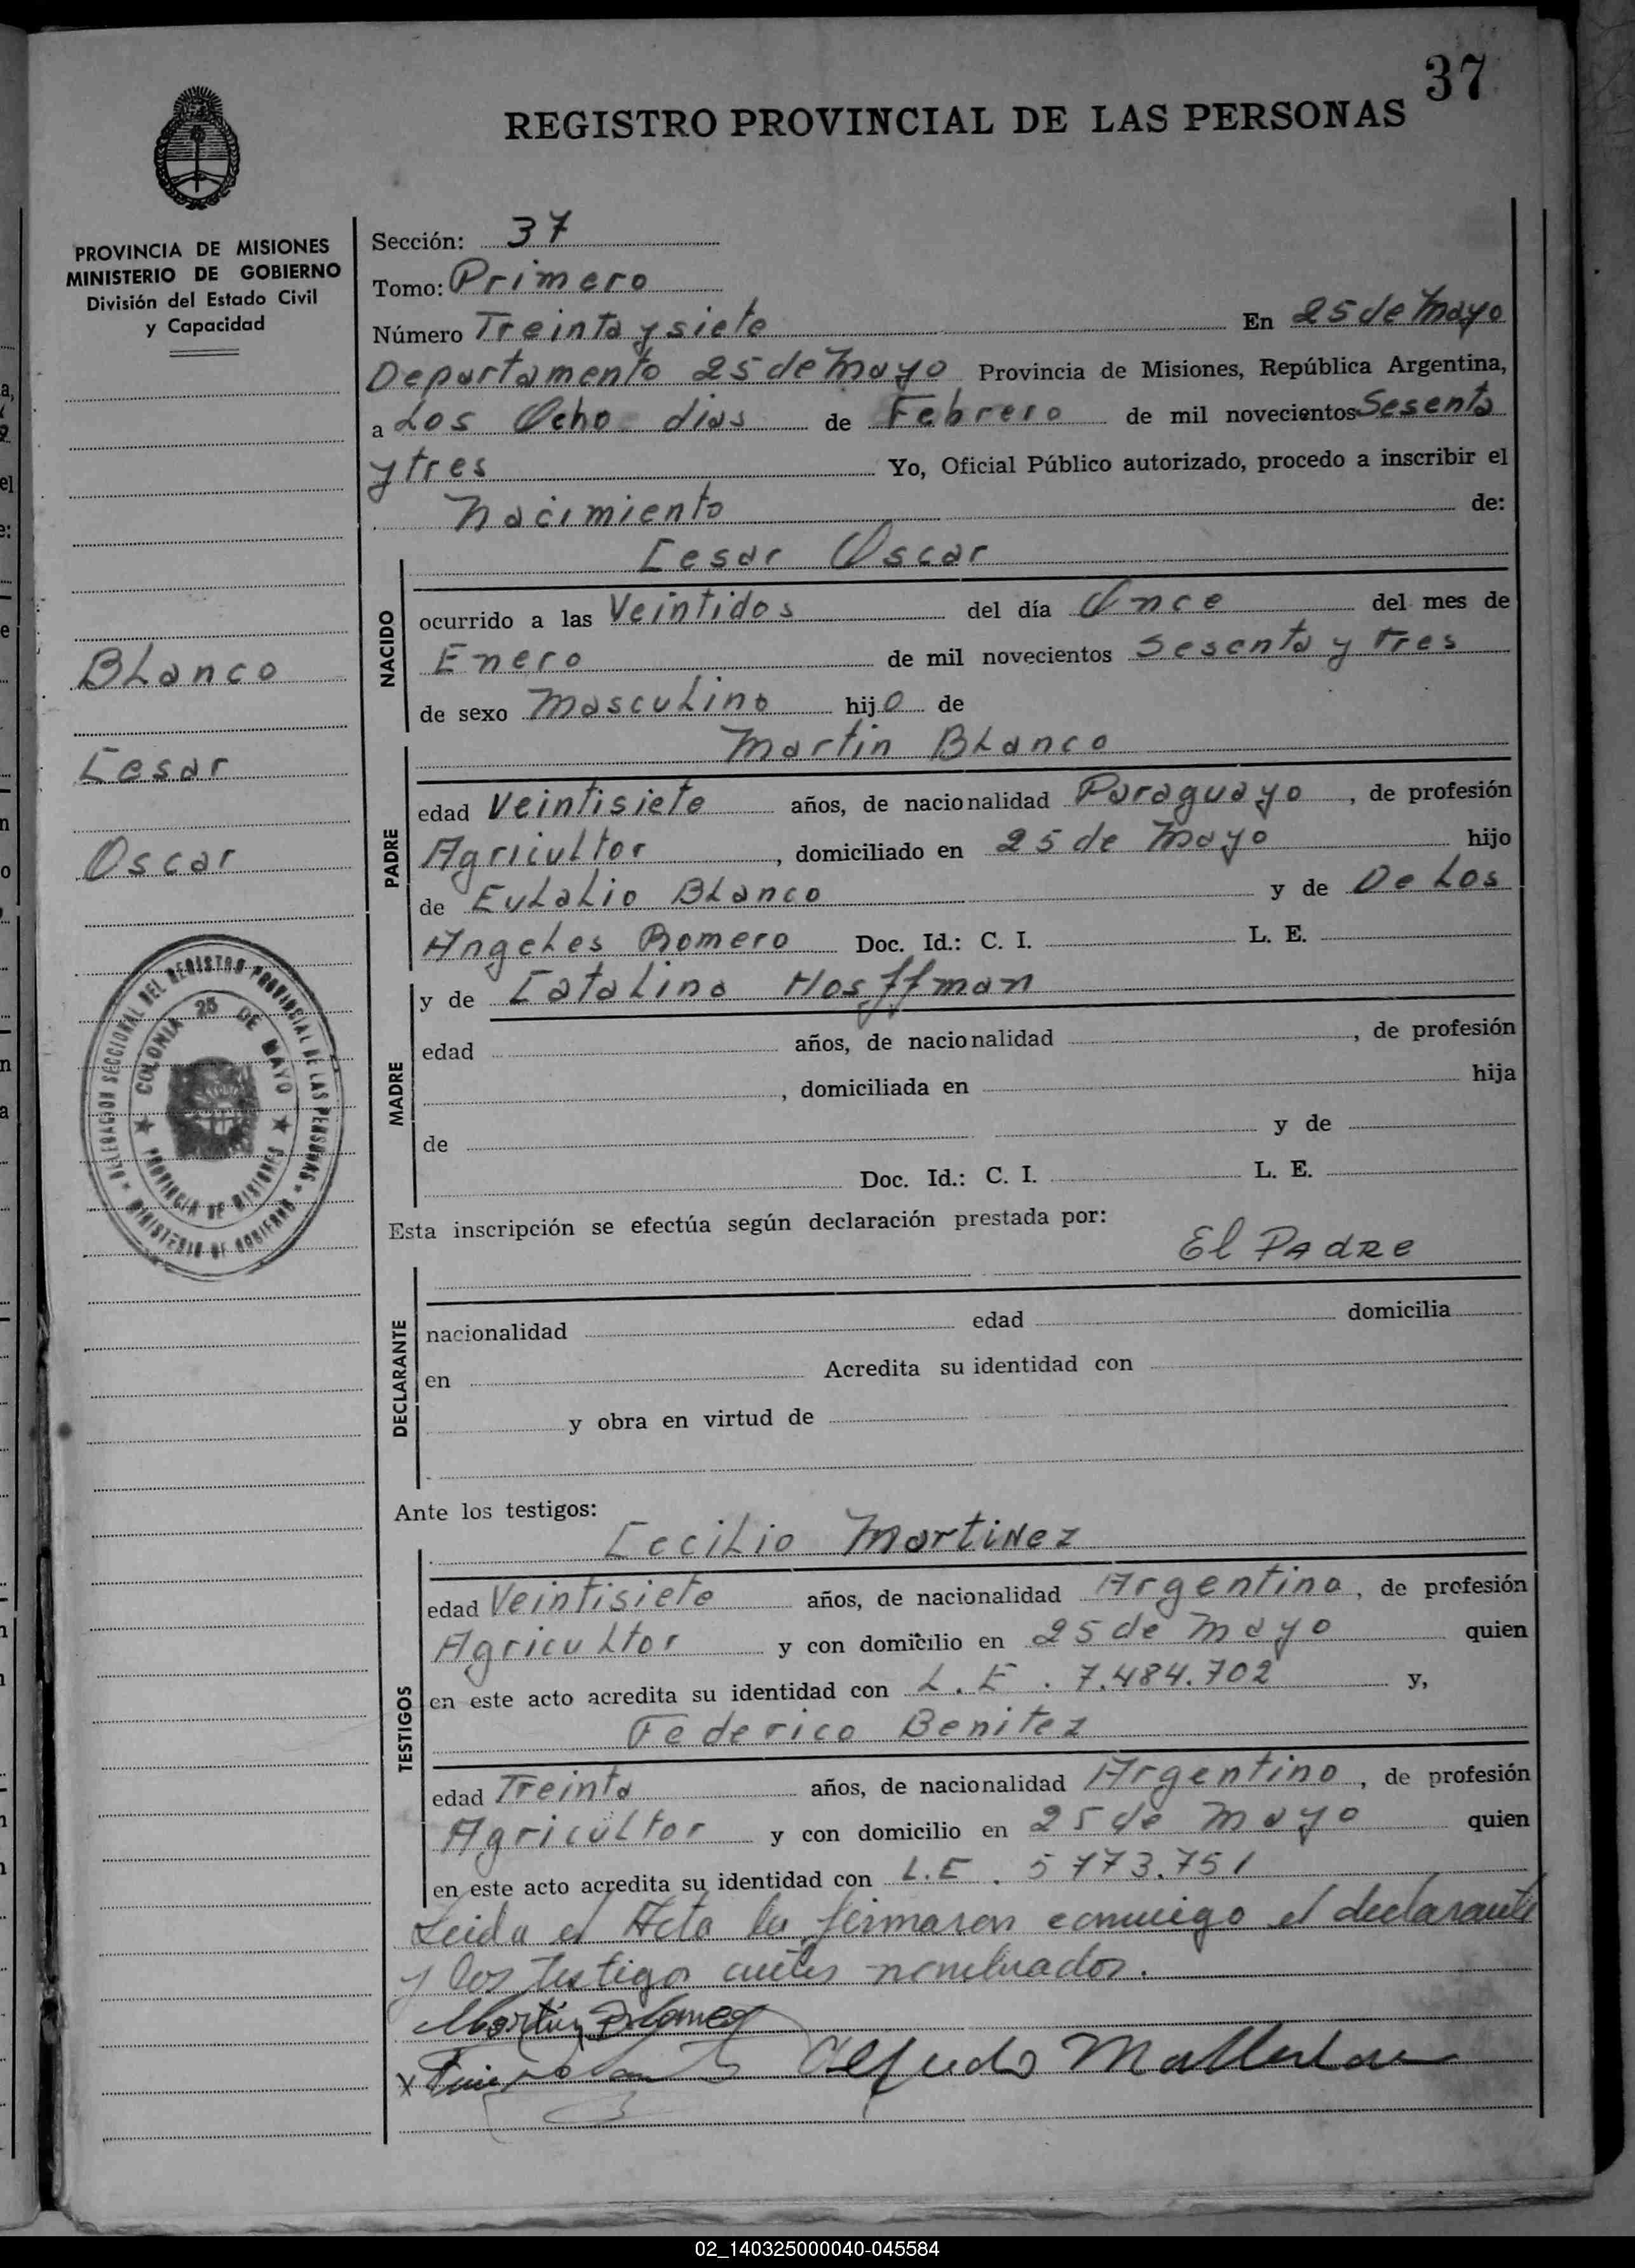 37
REGISTRO PROVINCIAL DE LAS PERSONAS
PROVINCIA DE MISIONES
MINISTERIO DE GOBIERNO
División del Estado Civil
y Capacidad
Blanco
Cesar
Oscar
DELEGACION SECCIONAL DEL REGISTRO PROVINCIAL DE LAS PERSONAS
MINISTERIO DE GOBIERNO
COLONIA 25 DE MAYO
PROVINCIA DE MISIONES
Sección: 37
Tomo: Primero
Número Treinta y siete En 25 de Mayo
Departamento 25 de Mayo Provincia de Misiones, República Argentina,
a Los Ocho dias de Febrero de mil novecientos Sesenta
y tres Yo, Oficial Público autorizado, procedo a inscribir el
Nacimiento de:
Cesar Oscar
NACIDO
ocurrido a las Veintidos del día Once del mes de
Enero de mil novecientos Sesenta y tres
de sexo Masculino hijo de
Martin Blanco
PADRE
edad Veintisiete años, de nacionalidad Paraguayo, de profesión
Agricultor, domiciliado en 25 de Mayo hijo
de Eulalio Blanco y de De Los
Angeles Romero Doc. Id.: C. I. L. E.
y de Catalina Hosffman
MADRE
edad años, de nacionalidad , de profesión
, domiciliada en hija
de y de
Doc. Id.: C. I. L. E.
Esta inscripción se efectúa según declaración prestada por:
El PAdRE
DECLARANTE
nacionalidad edad domicilia
en Acredita su identidad con
y obra en virtud de
Ante los testigos:
Cecilio Martinez
TESTIGOS
edad Veintisiete años, de nacionalidad Argentina, de profesión
Agricultor y con domicilio en 25 de Mayo quien
en este acto acredita su identidad con L.E. 7.484.702 y,
Federico Benitez
edad Treinta años, de nacionalidad Argentino, de profesión
Agricultor y con domicilio en 25 de Mayo quien
en este acto acredita su identidad con L.E. 5773.751
Leida el Acta la firmaron conmigo el declarante
y los testigos antes nombrados.
Martin Blanco
Alfredo
02_140325000040-045584